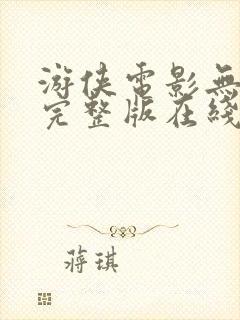 游侠電影無
完整版在綫
蔣琪